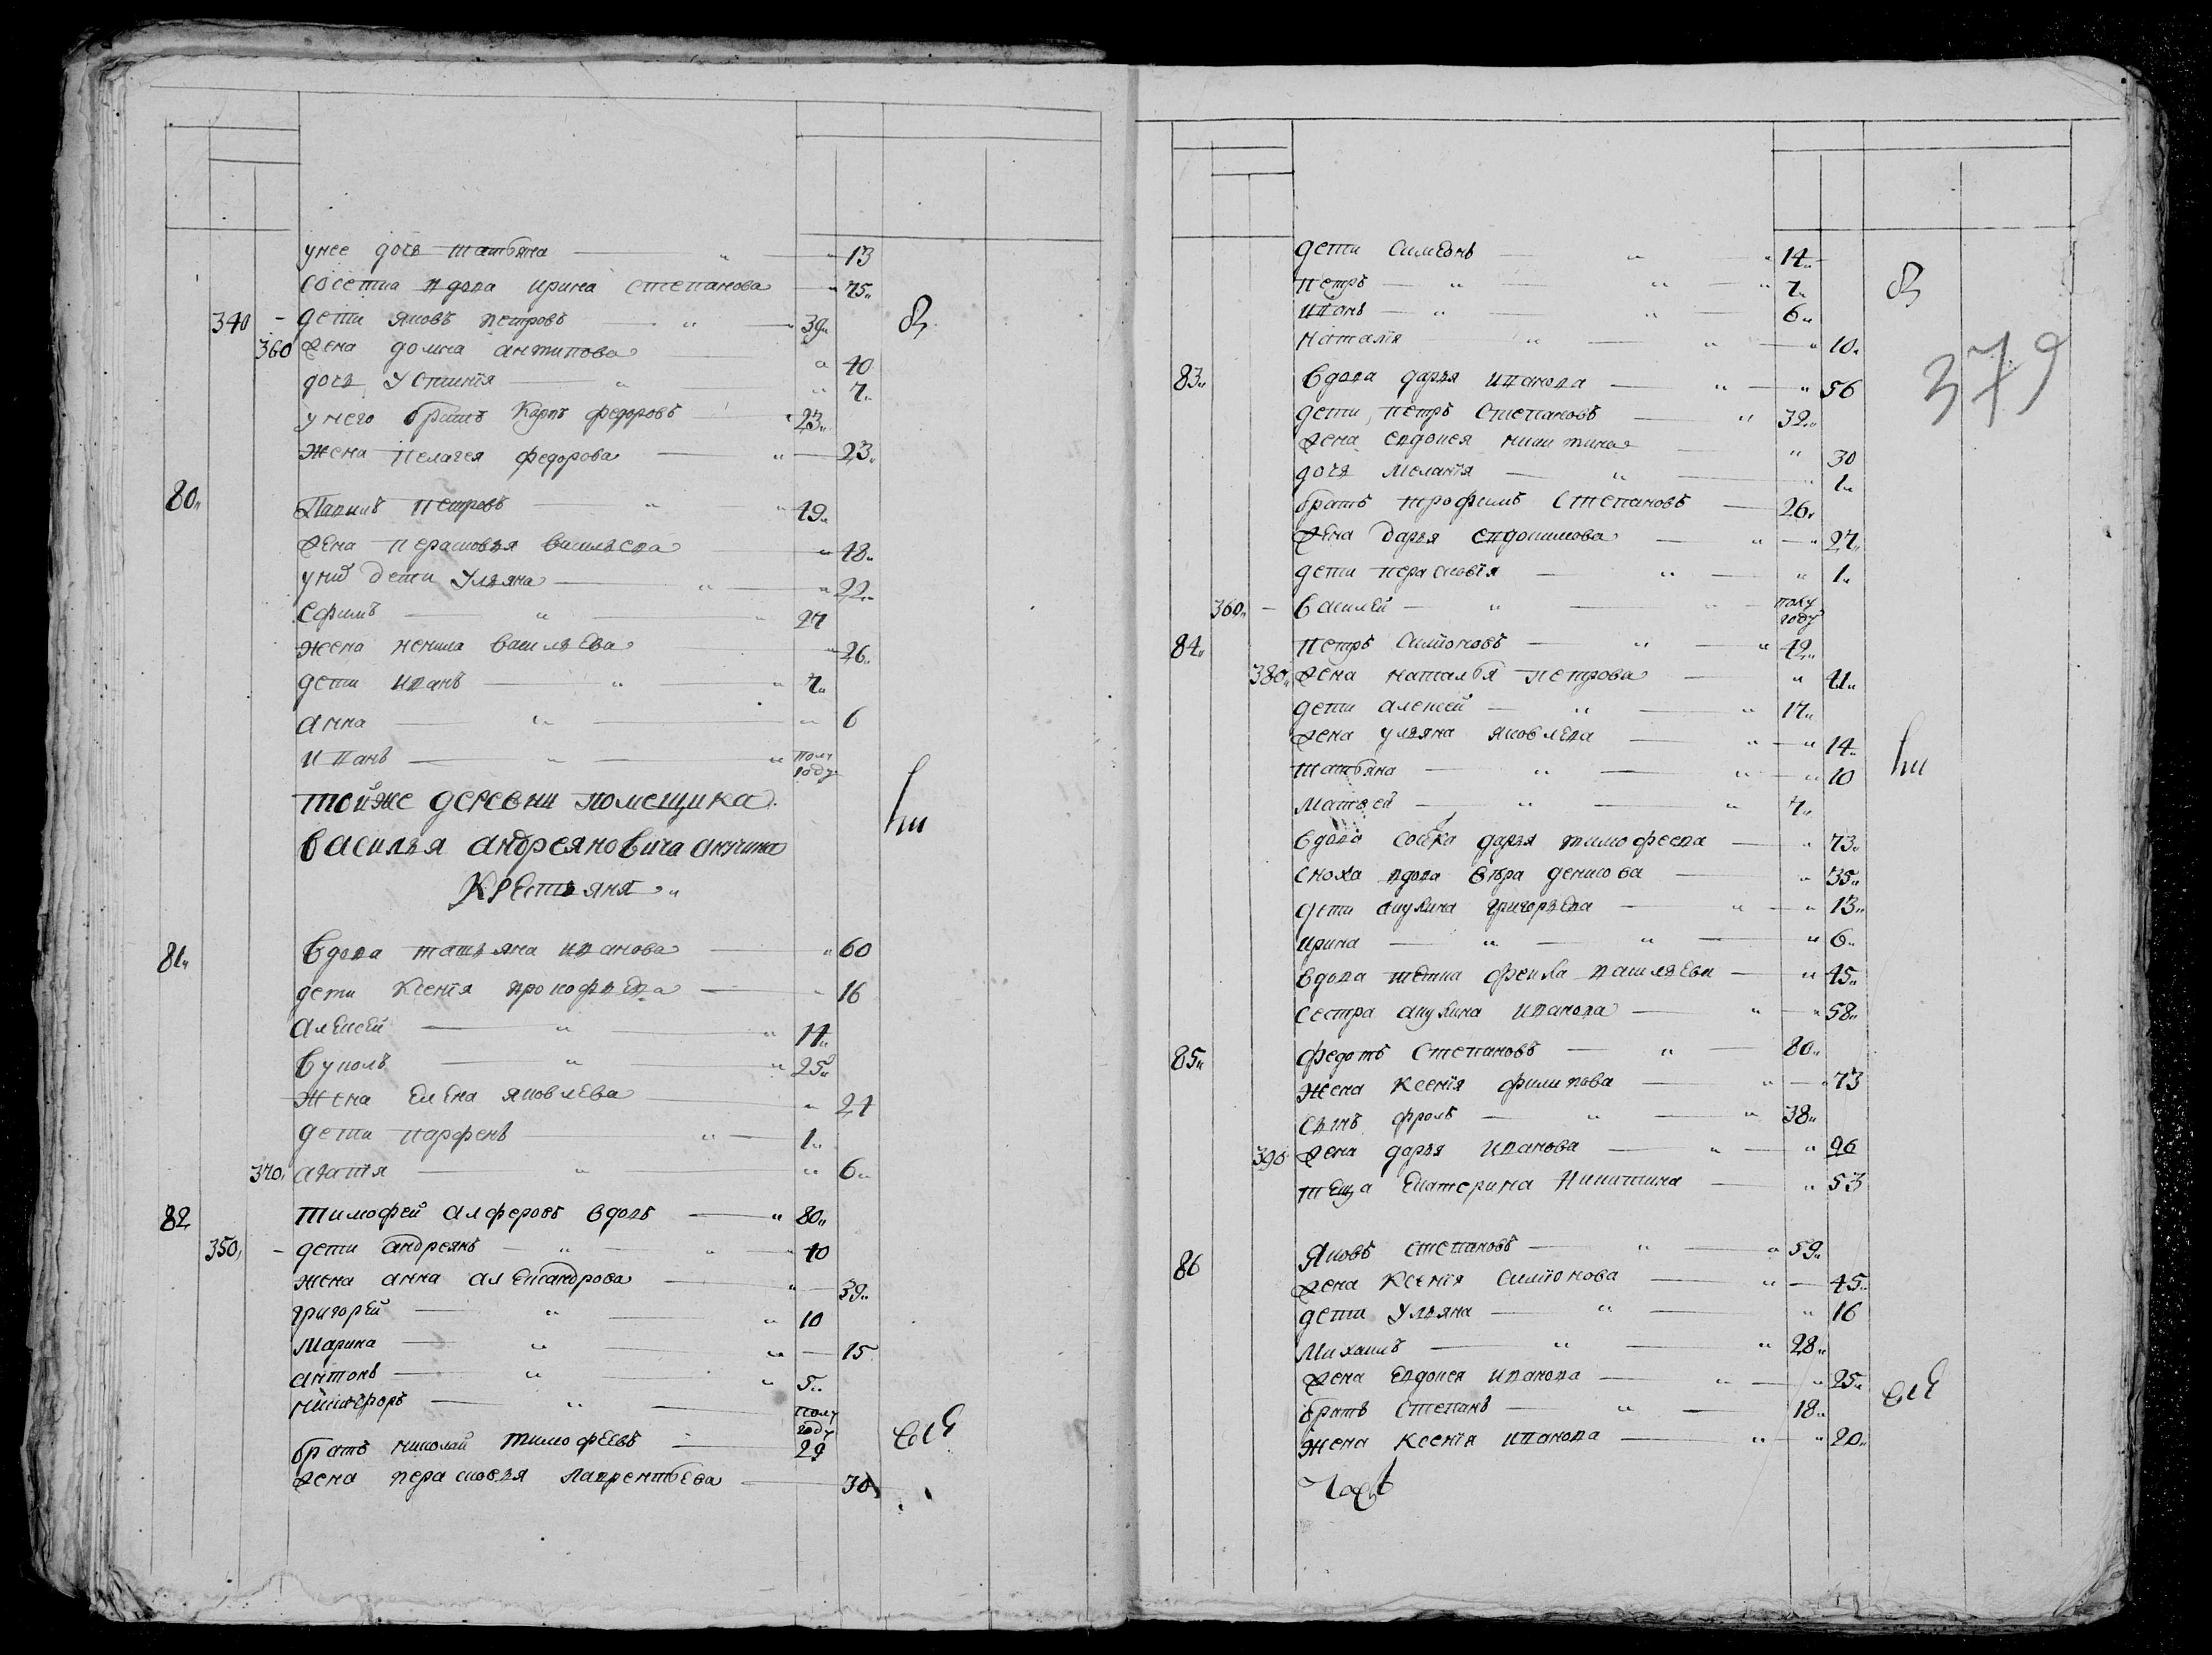 у нее дочь татьяна 13
сосетка вдова ирина степанова 75
340 дети яковъ петровъ 39
360 жена домна антипова 40
дочь устинїя 7
у него братъ карпъ федоровъ 23
жена пелагея федорова 23
80 петровъ 49
жена парасковья васильева 48
у них дети ульяна 22
ефимъ 27
жена ненила васильева 26
дети иванъ 7
анна 6
иванъ полугоду
той же деревни помещика
василья андреяновича анчина
крестьяня
81 вдова татьяна иванова 60
дети ксенїя прокофьева 16
алексей 11
вуколъ 25
жена елена яковлева 24
дети парфенъ 1
370 агатїя 6
82 тимофей алферовъ вдовъ 80
350 дети андреянъ 40
жена анна александрова 39
григорей 10
марина 15
антонъ 5
никифоръ полугоду
братъ николай тимофеевъ 29
жена парасковья лаврентьева 30
дети симеонъ 14
петръ 7
иванъ 6
наталїя 10
379
83 вдова дарья иванова 56
дети петръ степановъ 32
жена евдокея никитина 30
дочь меланїя 1
братъ трофимъ степановъ 26
жена дарья евдокимова 27
дети парасковїя 1
360 василей полугоду
84 петръ симїоновъ 42
380 жена наталья петрова 41
дети алексей 17
жена ульяна яковлева 14
татьяна 10
матвей 4
вдова дарья тимофеева 73
сноха вдова вѣра денисова 35
дети акулина григорьева 13
ирина 6
вдова тетка фекла васильева 45
сестра акулина иванова 58
85 федотъ степановъ 80
жена ксенїя филипова 73
сынъ фролъ 38
390 жена дарья иванова 96
теща екатерина никитина 53
86 яковъ степановъ 59
жена ксенїя симїонова 45
дети ульяна 16
михаилъ 28
жена евдокея иванова 25
братъ степанъ 18
жена ксенїя иванова 20